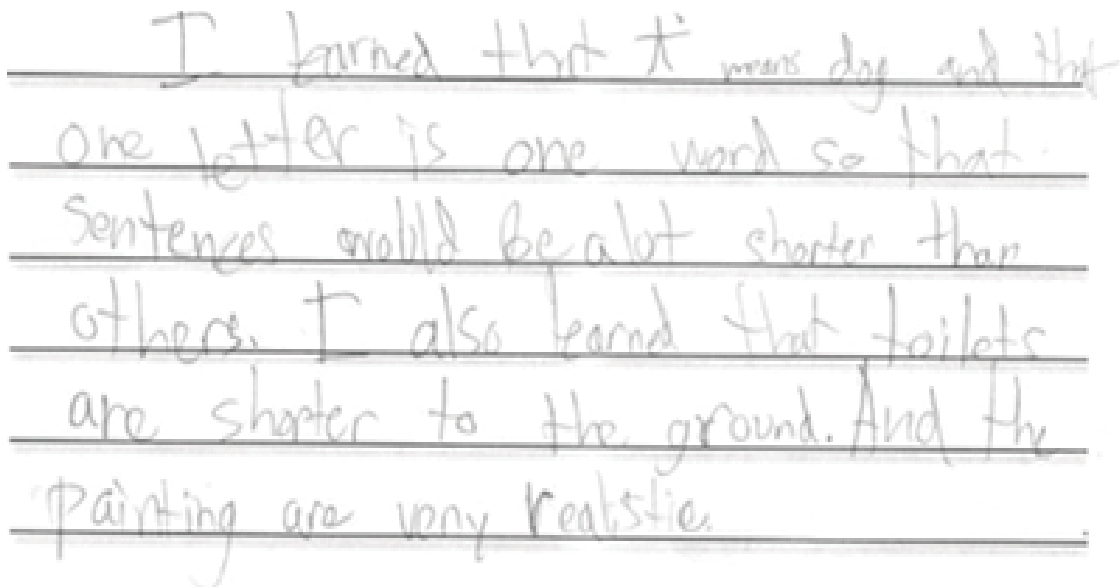 I learned that 犬 means dog and that
one letter is one word so that
sentences would be a lot shorter than
others. I also learned that toilets
are shorter to the ground. And the
painting are very realistic.